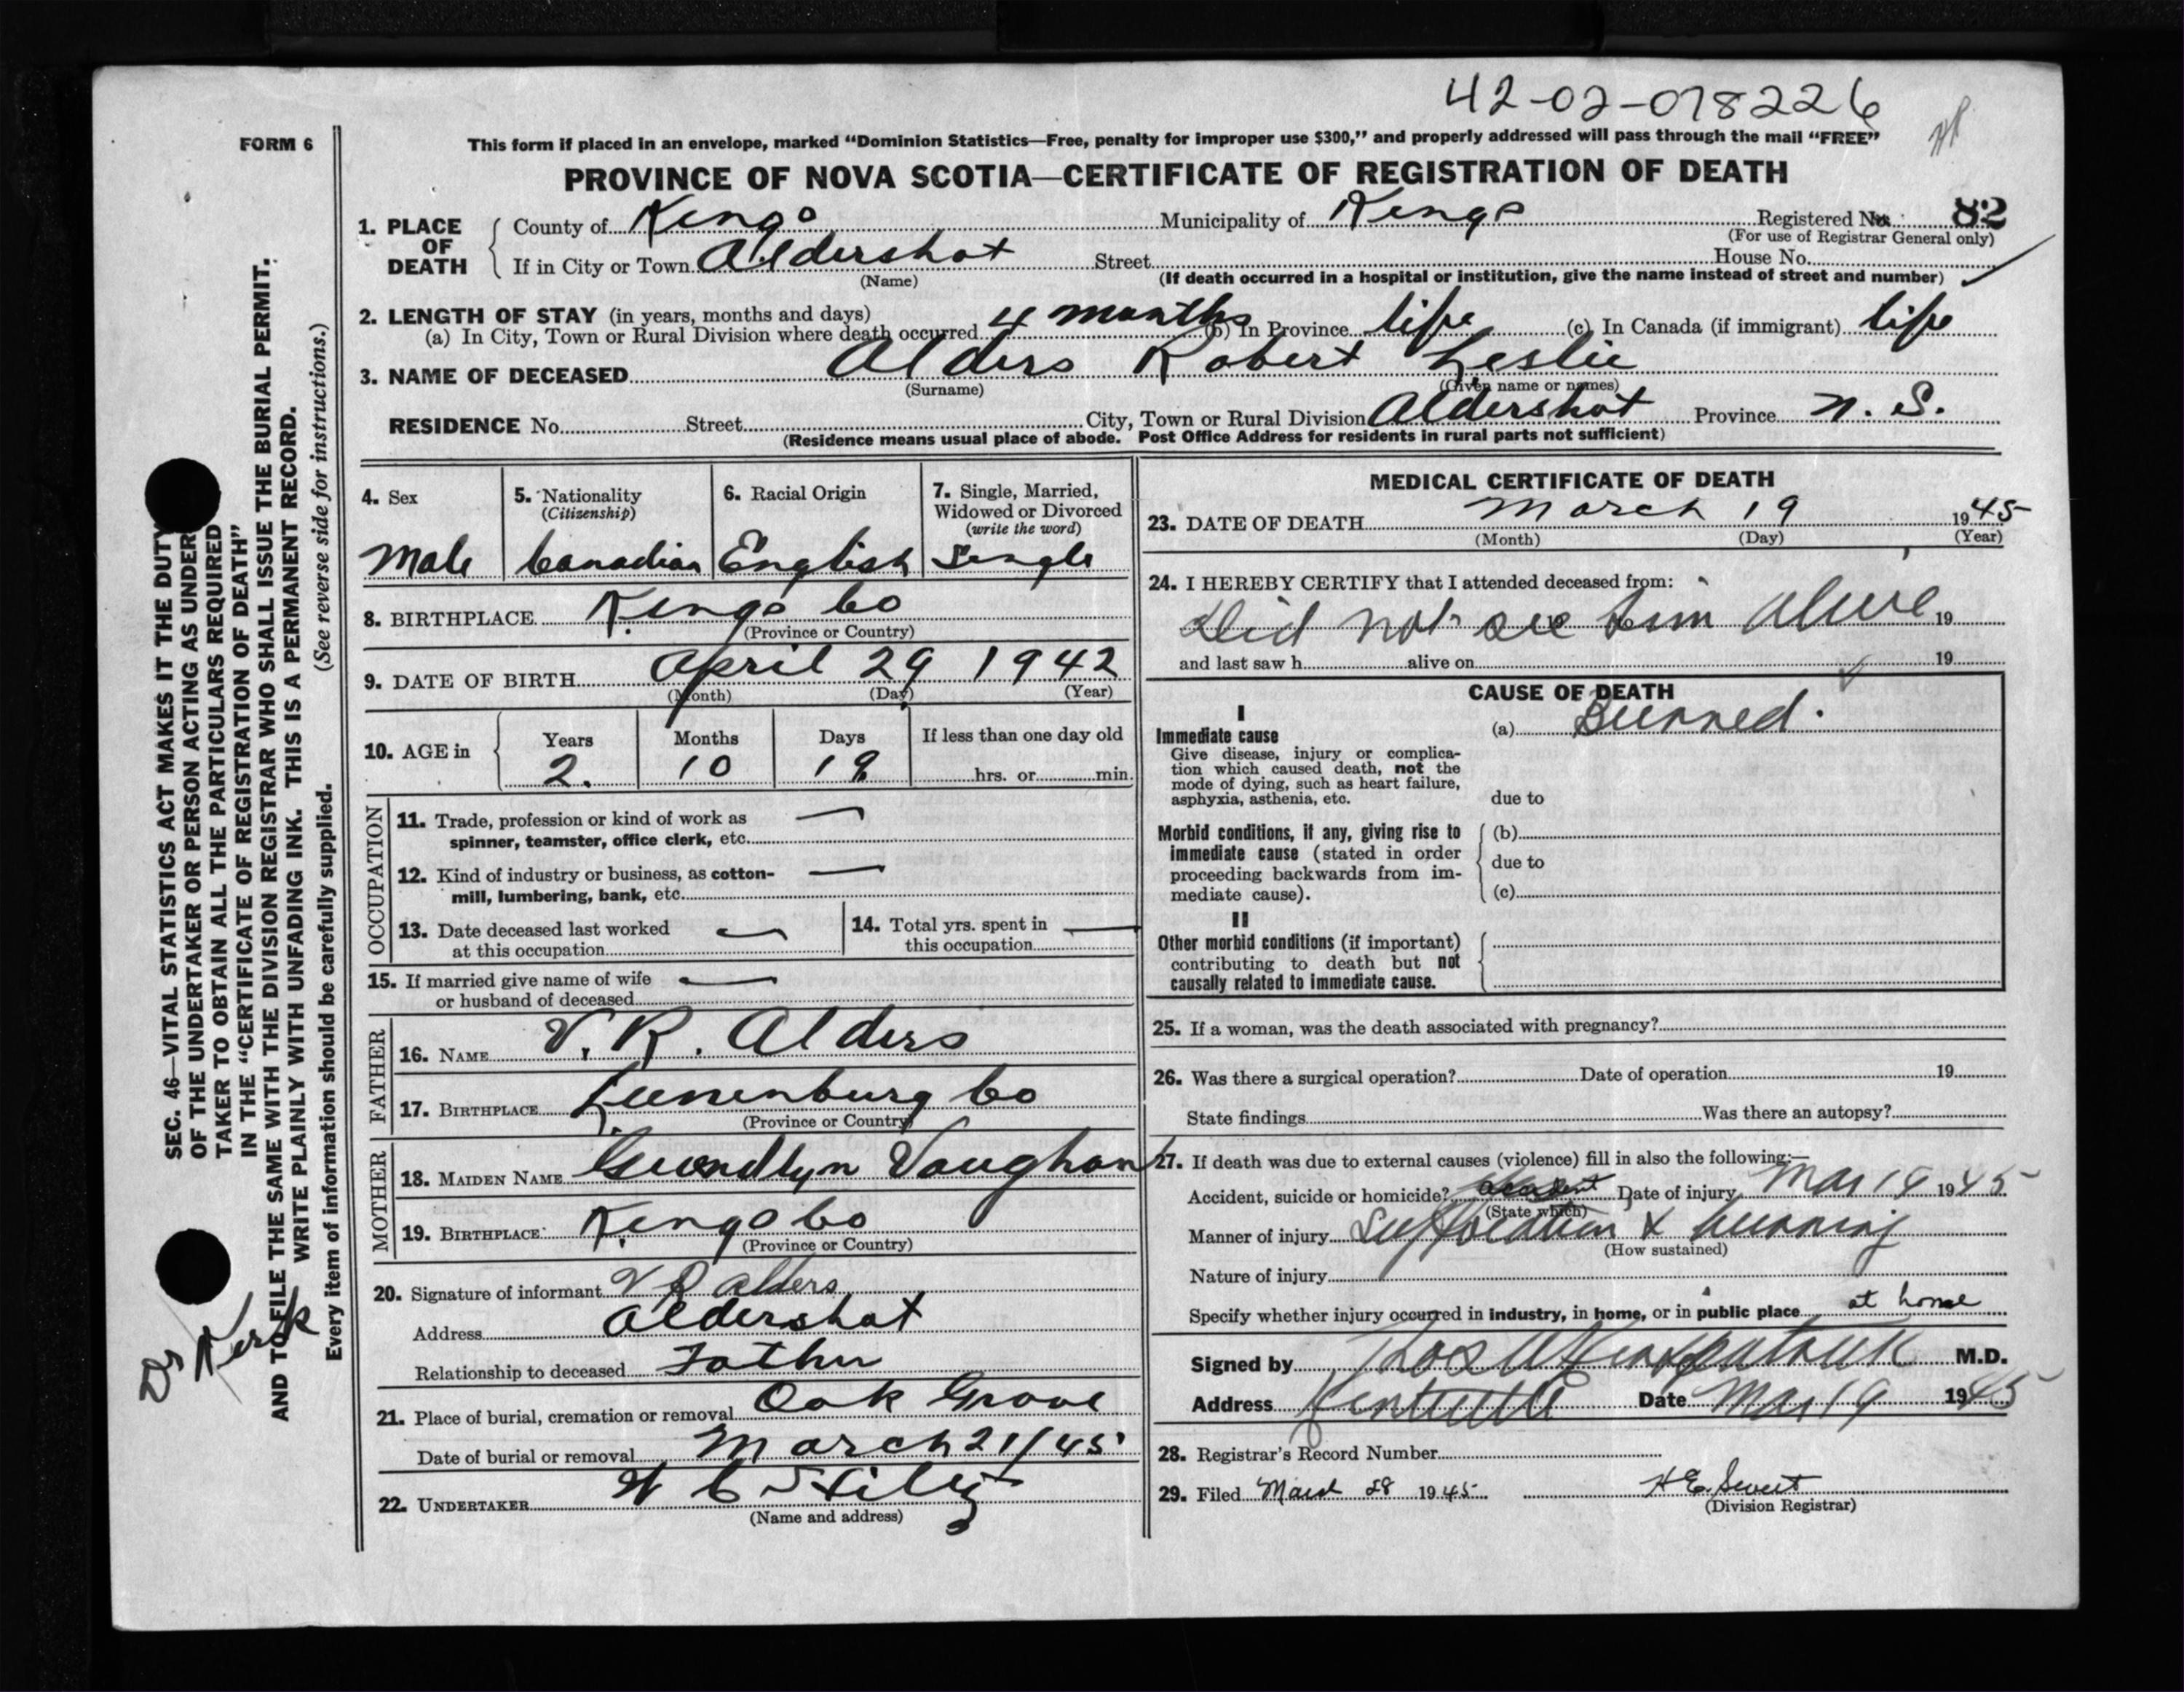 42-02-078226
FORM 6
This form if placed in an envelope, marked “Dominion Statistics—Free, penalty for improper use $300,” and properly addressed will pass through the mail “FREE”
PROVINCE OF NOVA SCOTIA—CERTIFICATE OF REGISTRATION OF DEATH
1. PLACE OF DEATH County of Kings Municipality of Kings Registered No. 82
(For use of Registrar General only)
If in City or Town Aldershot Street House No.
(Name) (If death occurred in a hospital or institution, give the name instead of street and number)
2. LENGTH OF STAY (in years, months and days)
(a) In City, Town or Rural Division where death occurred 4 months (b) In Province life (c) In Canada (if immigrant) life
3. NAME OF DECEASED Alders Robert Leslie
(Surname) (Given name or names)
RESIDENCE No. Street City, Town or Rural Division Aldershot Province N. S.
(Residence means usual place of abode. Post Office Address for residents in rural parts not sufficient)
4. Sex
Male
5. Nationality
(Citizenship)
Canadian
6. Racial Origin
English
7. Single, Married,
Widowed or Divorced
(write the word)
Single
8. BIRTHPLACE Kings Co
(Province or Country)
9. DATE OF BIRTH April 29 1942
(Month) (Day) (Year)
10. AGE in Years Months Days If less than one day old
2. 10 19 hrs. or min.
OCCUPATION
11. Trade, profession or kind of work as —
spinner, teamster, office clerk, etc.
12. Kind of industry or business, as cotton- —
mill, lumbering, bank, etc.
13. Date deceased last worked —
at this occupation
14. Total yrs. spent in —
this occupation
15. If married give name of wife —
or husband of deceased
FATHER
16. NAME V. R. Alders
17. BIRTHPLACE Lunenburg Co
(Province or Country)
MOTHER
18. MAIDEN NAME Gwendlyn Vaughan
19. BIRTHPLACE Kings Co
(Province or Country)
20. Signature of informant V R Alders
Address Aldershot
Relationship to deceased Father
21. Place of burial, cremation or removal Oak Grove
Date of burial or removal March 21/45
22. UNDERTAKER W C
(Name and address)
MEDICAL CERTIFICATE OF DEATH
23. DATE OF DEATH March 19 1945
(Month) (Day) (Year)
24. I HEREBY CERTIFY that I attended deceased from:
Did not see him alive 19
and last saw h alive on 19
CAUSE OF DEATH
I
Immediate cause
Give disease, injury or complica-
tion which caused death, not the
mode of dying, such as heart failure,
asphyxia, asthenia, etc.
(a) Burned.
due to
Morbid conditions, if any, giving rise to
immediate cause (stated in order
proceeding backwards from im-
mediate cause).
(b)
due to
(c)
II
Other morbid conditions (if important)
contributing to death but not
causally related to immediate cause.
25. If a woman, was the death associated with pregnancy?
26. Was there a surgical operation? Date of operation 19
State findings Was there an autopsy?
27. If death was due to external causes (violence) fill in also the following:—
Accident, suicide or homicide? accident Date of injury Mar 19 1945
(State which)
Manner of injury Suffocation & burning
(How sustained)
Nature of injury
Specify whether injury occurred in industry, in home, or in public place at home
Signed by M.D.
Address Kentville Date Mar 19 1945
28. Registrar's Record Number
29. Filed March 28 1945 H E
(Division Registrar)
SEC. 46—VITAL STATISTICS ACT MAKES IT THE DUTY
OF THE UNDERTAKER OR PERSON ACTING AS UNDER
TAKER TO OBTAIN ALL THE PARTICULARS REQUIRED
IN THE “CERTIFICATE OF REGISTRATION OF DEATH”
AND TO FILE THE SAME WITH THE DIVISION REGISTRAR WHO SHALL ISSUE THE BURIAL PERMIT.
WRITE PLAINLY WITH UNFADING INK. THIS IS A PERMANENT RECORD.
Every item of information should be carefully supplied. (See reverse side for instructions.)
Dr